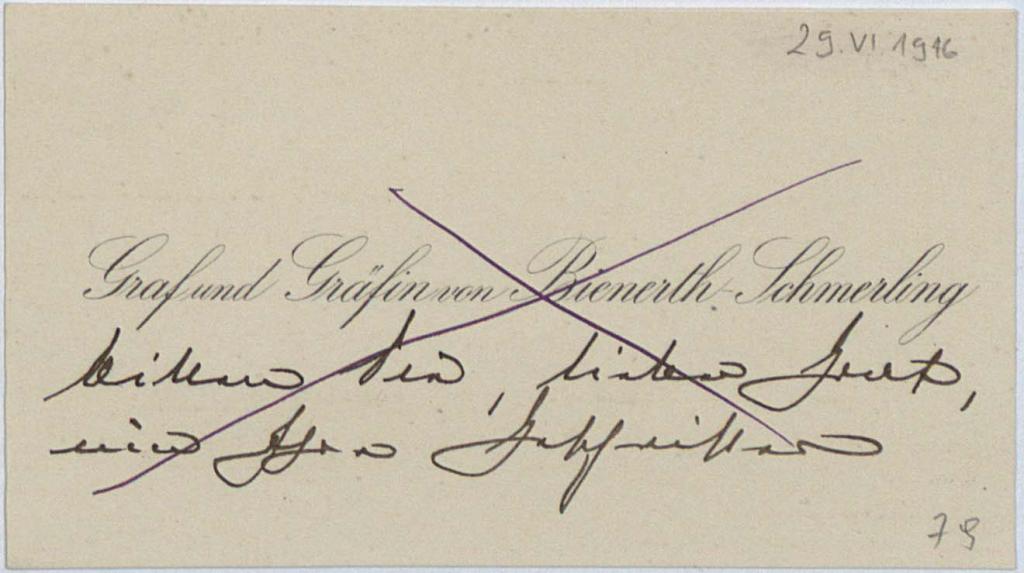 29.VI.1916
Graf und Gräfin von Bienerth-Schmerling
bitten Sie, lieber Graf,
um Ihre
79